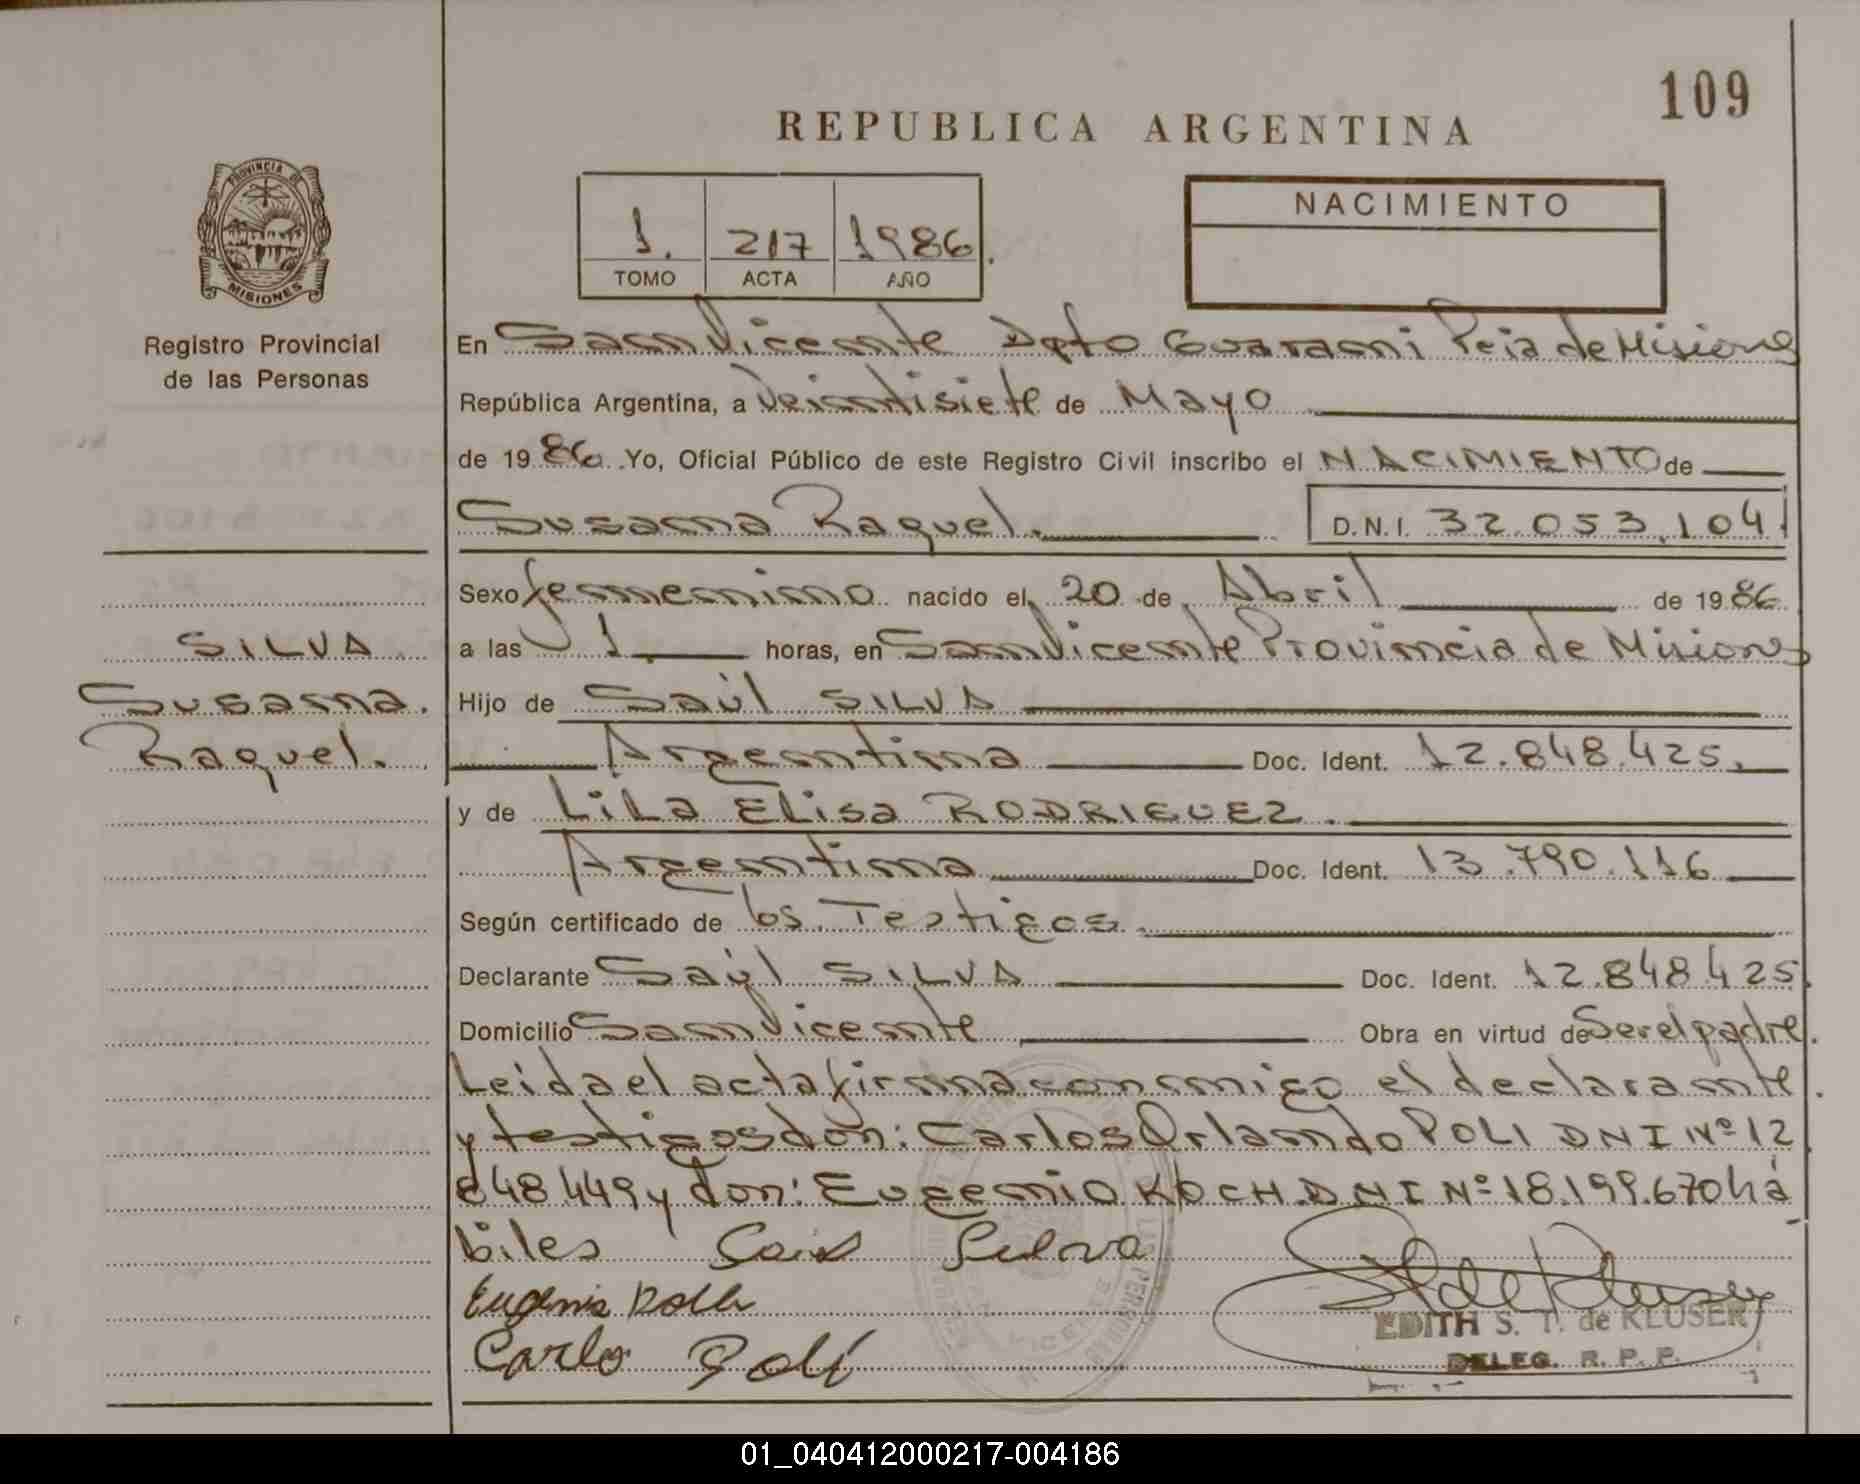 109
REPUBLICA ARGENTINA
PROVINCIA DE
MISIONES
Registro Provincial
de las Personas
1. 217 1986.
TOMO ACTA AÑO
NACIMIENTO
En San Vicente Dpto Guarani Pcia de Misiones
República Argentina, a Veintisiete de Mayo
de 1986. Yo, Oficial Público de este Registro Civil inscribo el NACIMIENTO de
Susana Raquel. D.N.I. 32.053.104
Sexo femenino nacido el 20 de Abril de 1986
a las 1 horas, en San Vicente Provincia de Misiones
SILVA
Susana.
Raquel.
Hijo de Saúl SILVA
Argentina Doc. Ident. 12.848.425.
y de Lila Elisa RODRIGUEZ.
Argentina Doc. Ident. 13.790.116
Según certificado de los Testigos.
Declarante Saúl SILVA Doc. Ident. 12.848.425
Domicilio San Vicente Obra en virtud de Ser el padre.
Leida el acta firma conmigo el declarante
y testigos don: Carlos Orlando POLI DNI Nº 12
848.449 y don: Eugenio KOCH. DNI Nº 18.199.670 há
biles Silva
Carlo Poli
EDITH S. T. de KLUSER
DELEG. R. P. P.
01_040412000217-004186